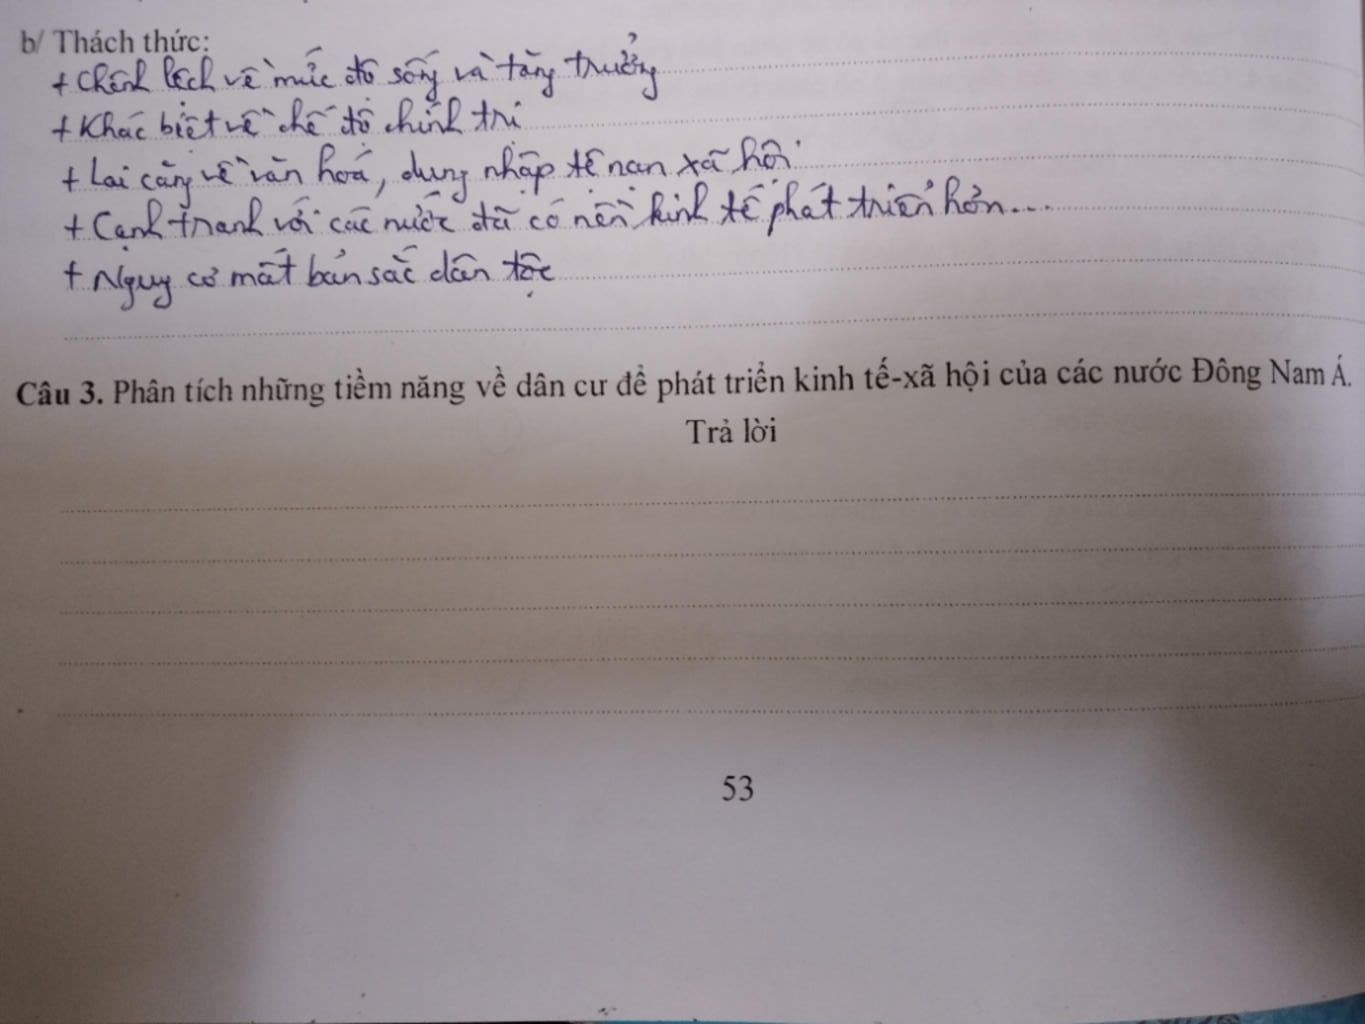 b/ Thách thức:
+ Chênh lệch về mức độ sống và tăng trưởng
+ Khác biệt về chế độ chính trị
+ Lai căng về văn hoá, dung nhập tệ nạn xã hội
+ Cạnh tranh với các nước đã có nền kinh tế phát triển hơn...
+ Nguy cơ mất bản sắc dân tộc
Câu 3. Phân tích những tiềm năng về dân cư để phát triển kinh tế-xã hội của các nước Đông Nam Á.
Trả lời
53